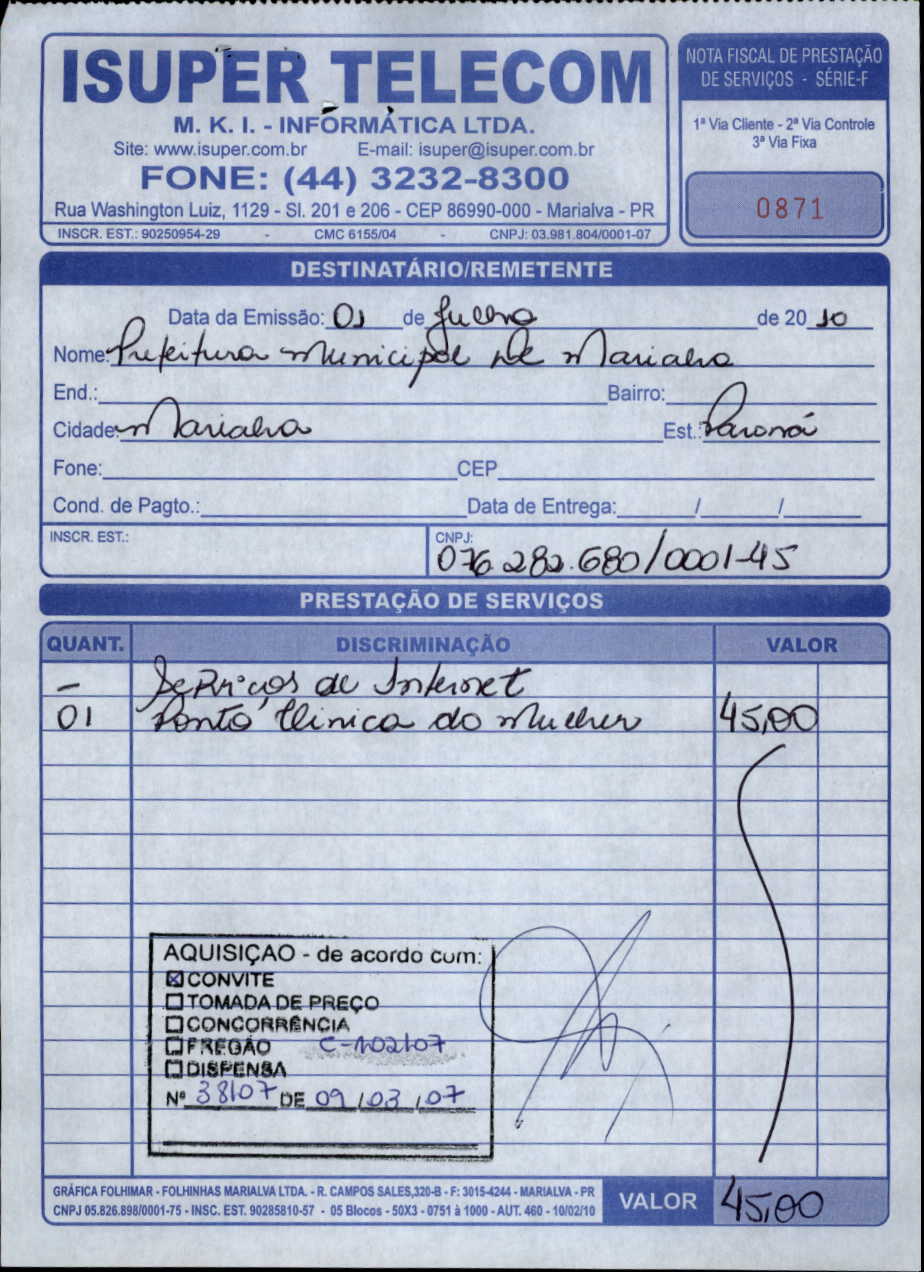 ISUPER TELECOM
M. K. I. - INFORMÁTICA LTDA.
Site: www.isuper.com.br E-mail: isuper@isuper.com.br
FONE: (44) 3232-8300
Rua Washington Luiz, 1129 - Sl. 201 e 206 - CEP 86990-000 - Marialva - PR
INSCR. EST.: 90250954-29 - CMC 6155/04 - CNPJ: 03.981.804/0001-07
NOTA FISCAL DE PRESTAÇÃO
DE SERVIÇOS - SÉRIE-F
1ª Via Cliente - 2ª Via Controle
3ª Via Fixa
0871
DESTINATÁRIO/REMETENTE
Data da Emissão: 01 de Julho de 20 10
Nome: Prefeitura Municipal de Marialva
End.: Bairro:
Cidade: Marialva Est.: Paraná
Fone: CEP
Cond. de Pagto.: Data de Entrega: / /
INSCR. EST.: CNPJ: 076.282.680/0001-45
PRESTAÇÃO DE SERVIÇOS
QUANT. DISCRIMINAÇÃO VALOR
- Serviços de Internet
01 Ponto Clinica da Mulher 45,00
AQUISIÇAO - de acordo cum:
☒ CONVITE
☐ TOMADA DE PREÇO
☐ CONCORRÊNCIA
☐ PREGÃO C-102107
☐ DISPENSA
Nº 38107 DE 09/03/07
GRÁFICA FOLHIMAR - FOLHINHAS MARIALVA LTDA. - R. CAMPOS SALES,320-B - F: 3015-4244 - MARIALVA - PR
CNPJ 05.826.898/0001-75 - INSC. EST. 90285810-57 - 05 Blocos - 50X3 - 0751 à 1000 - AUT. 460 - 10/02/10
VALOR 45,00